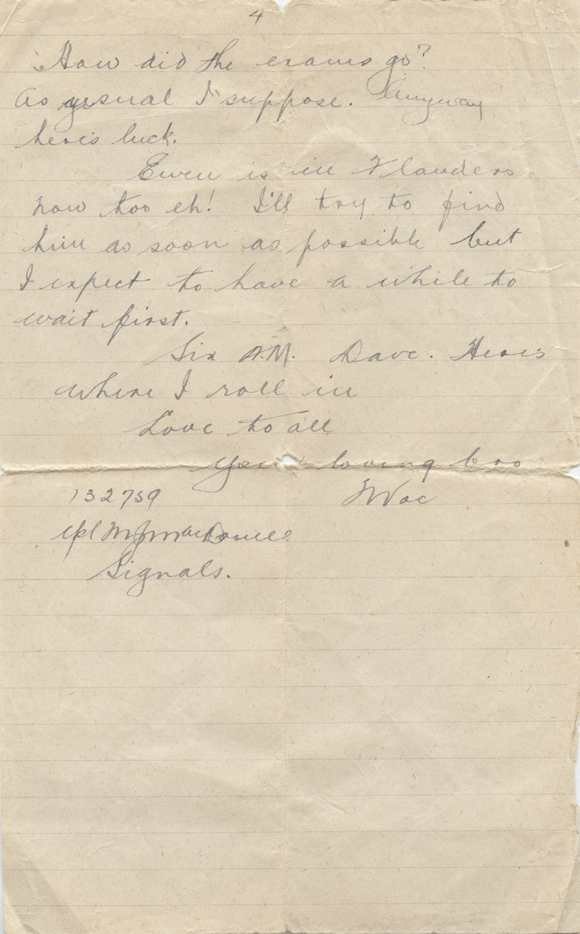 4
How did the exams go?
As usual I suppose. Anyway
here's luck.
Ewen is in Flanders
now too eh! I'll try to find
him as soon as possible but
I expect to have a while to
wait first.
Six AM. Dave. Here's
where I roll in
Love to all
Your loving bro
132739
Cpl MacDonell
Signals.